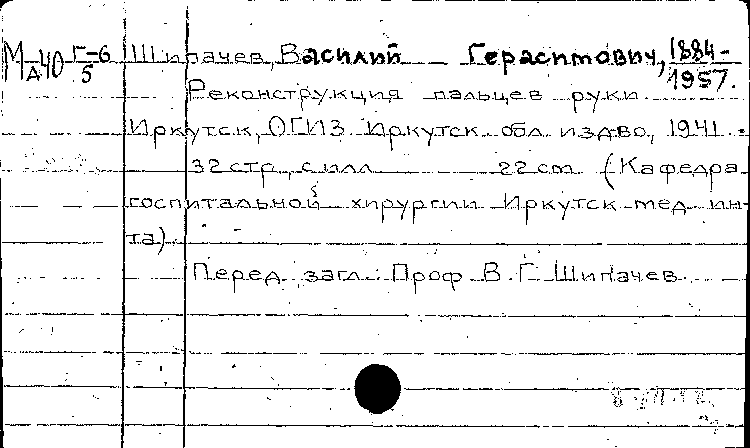 МД40 Г-6/5 Шипачев, Василий Герасимович, 1884-1957.
Реконструкция пальцев руки
Иркутск, ОГИЗ Иркутск обл издво, 1941.
32 стр., с илл 22 cm (Кафедра
госпитальной хирургии Иркутск мед ин-
та)
Перед загл: Проф В. Г. Шипачев